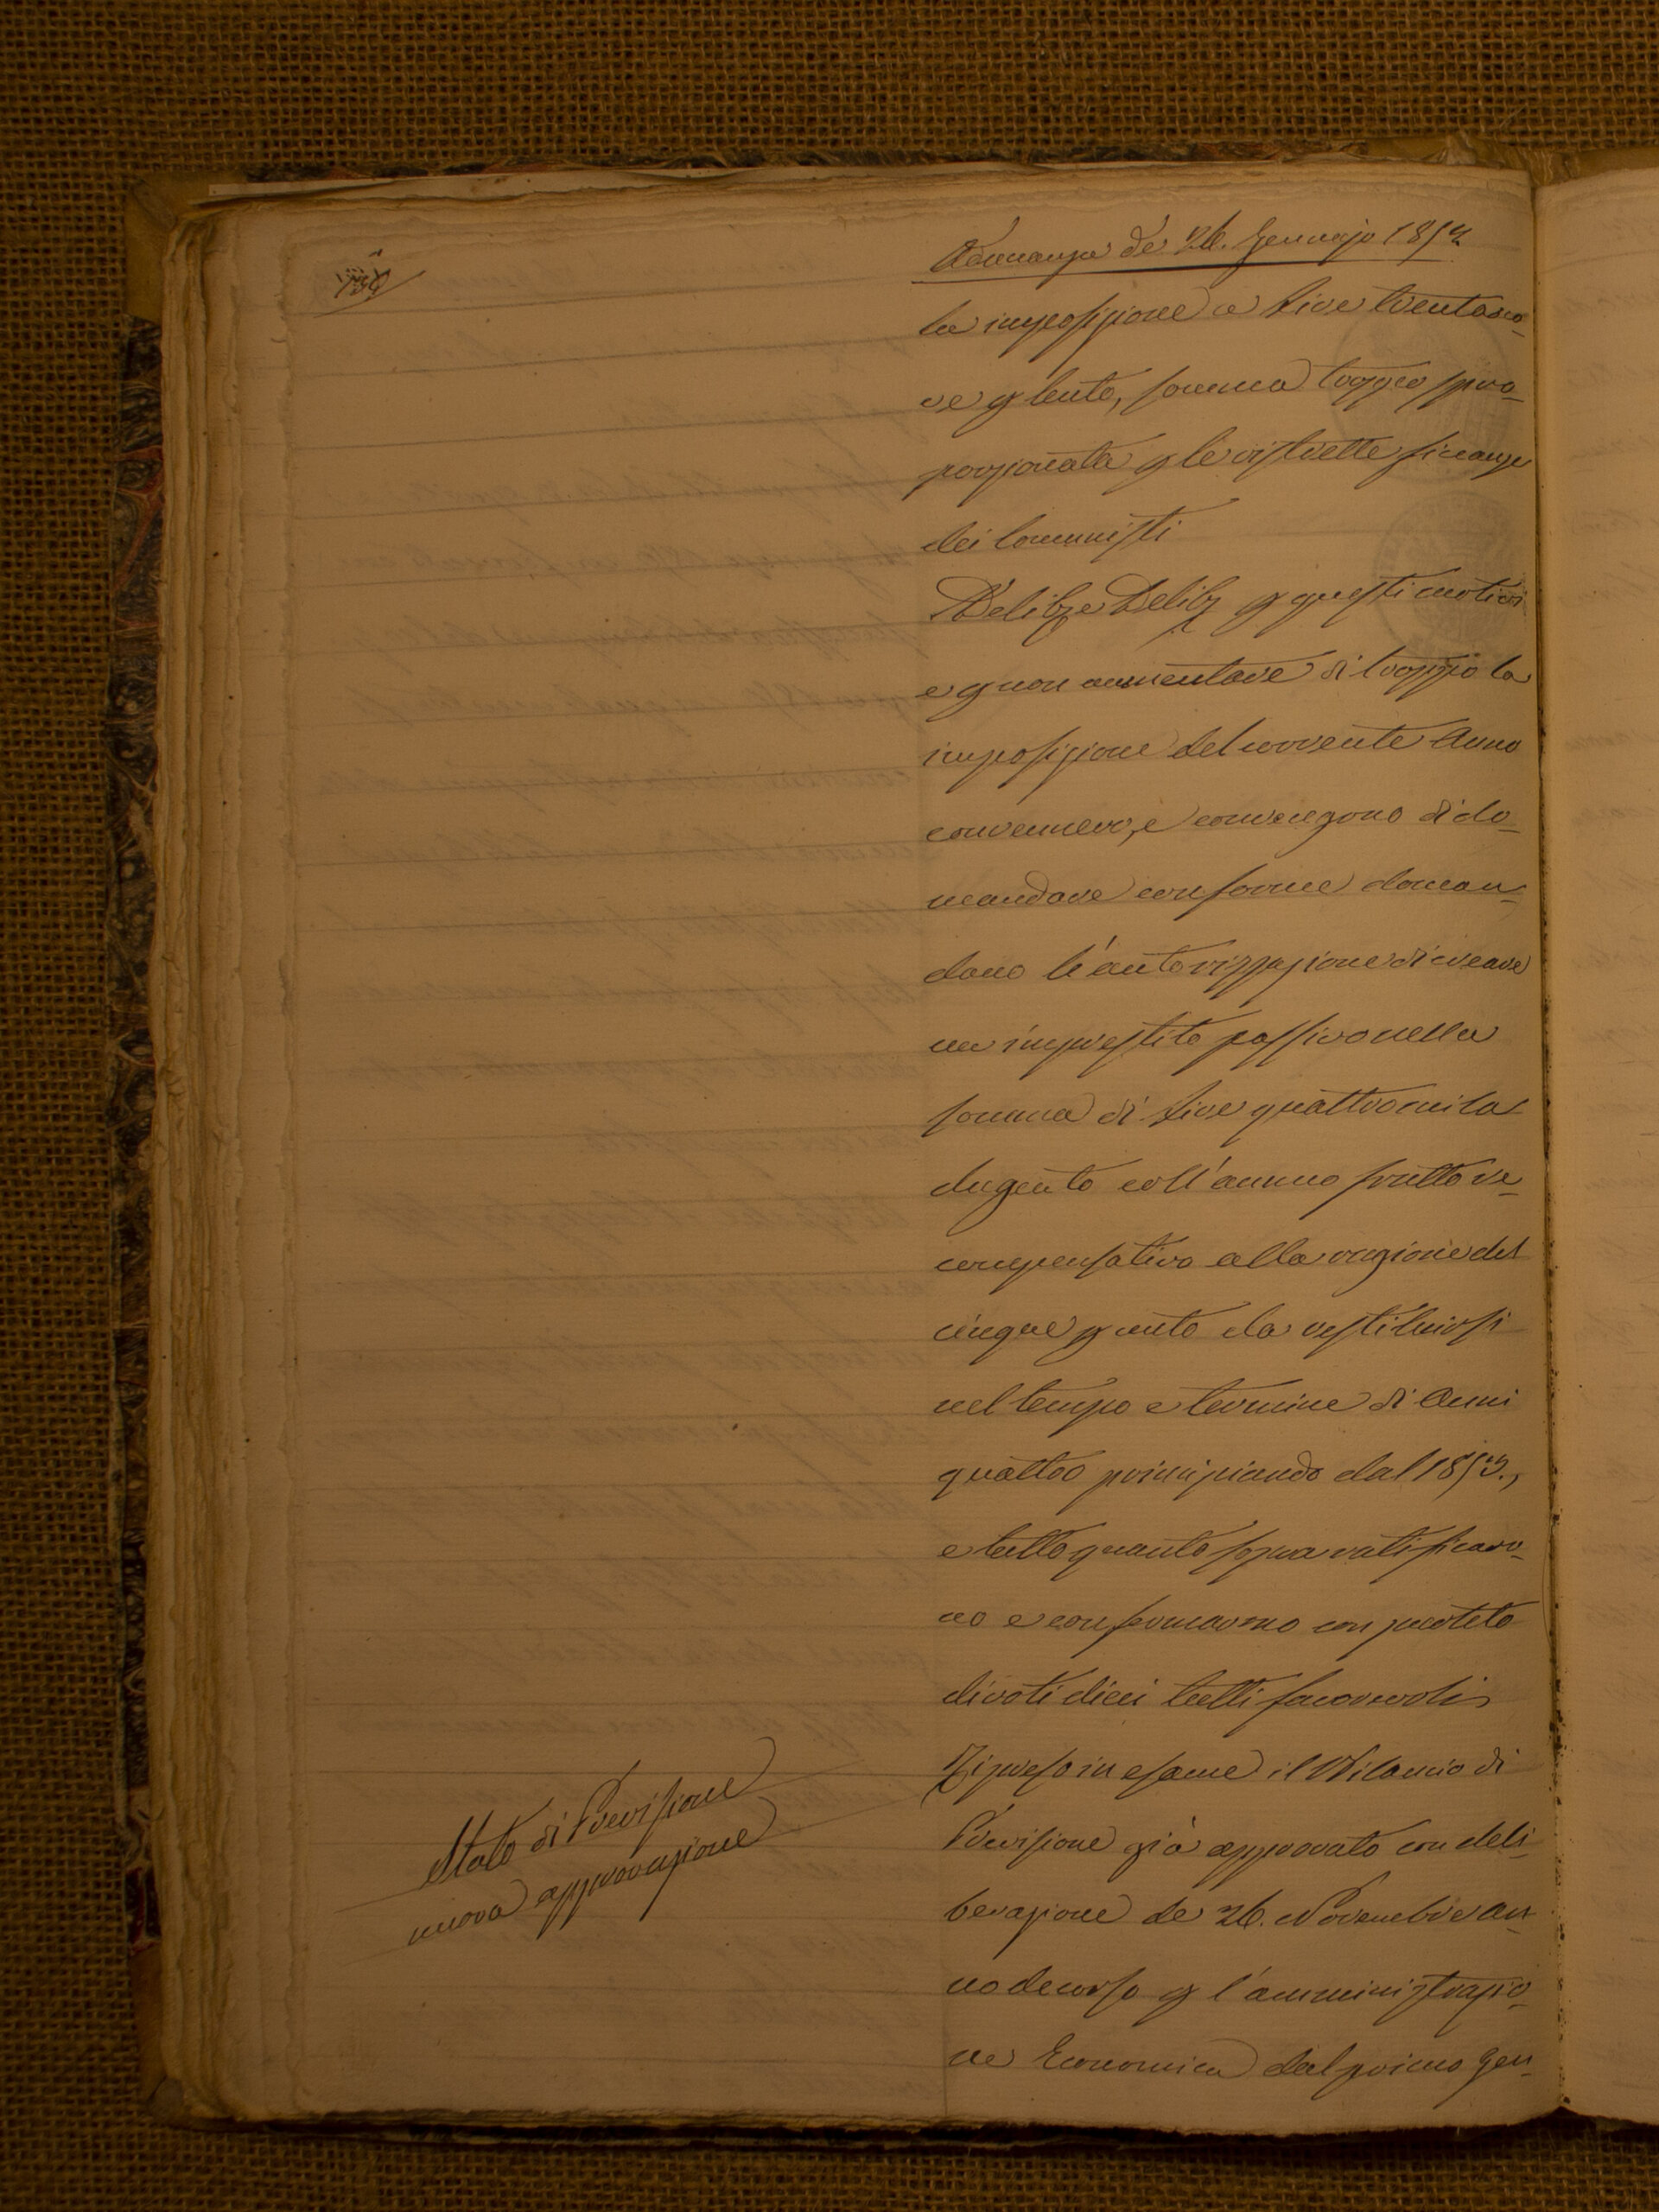 Adunanza de' 26. Gennajo 1852
la imposizione a Lire trentano-
ve p cento, somma troppo spro-
porzionata p le ristrette finanze
dei Comunisti
Delibe Delib p questi motivi
e p non aumentare di troppo la
imposizione del corrente Anno
convennero, e convengono di do-
mandare conforme doman-
dano l'autorizzazione di creare
un imprestito passivo nella
somma di Lire quattromila
dugento coll'annuo frutto re-
compensativo alla ragione del
cinque p cento da restituirsi
nel tempo e termine di Anni
quattro principiando dal 1853.,
e tutto quanto sopra ratificaro-
no e confermarono con partito
di voti dieci tutti favorevoli
Ripreso in esame il Bilancio di
Stato di Previsione
nuova approvazione
Previsione già approvato con deli-
berazione de' 26. Novembre an-
no decorso p l'amministrazio-
ne Economica del primo Gen-